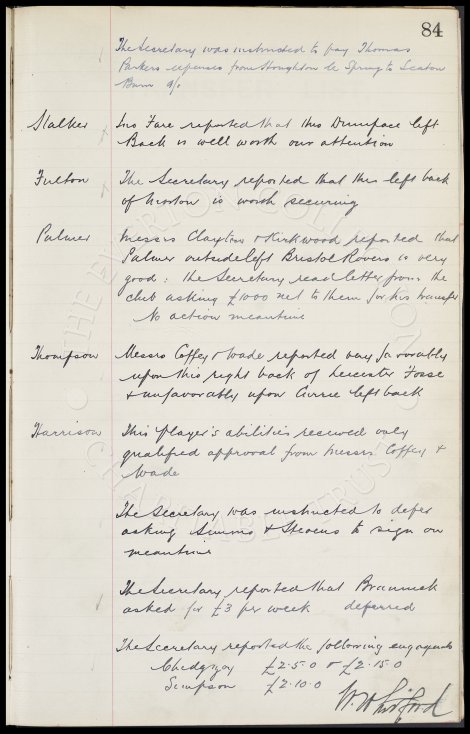 84
The Secretary was instructed to pay Thomas
Parkers expenses from Houghton le Spring to Seaton
Burn a/c
Stalker Jno Fare reported that this Dumface left
Back is well worth our attention
Fulton The Secretary reported that this left back
of Morton is worth securing
Palmer Messrs Clayton & Kirkwood reported that
Palmer outside left Bristol Rovers is very
good: the Secretary read letter from the
club asking £1000 net to them for his transfer
No action meantime
Thompson Messrs Coffey & Wade reported very favorably
upon this right back of Leicester Fosse
& unfavorably upon Currie left back
Harrison This player's abilities received only
qualified approval from Messrs Coffey &
Wade
The Secretary was instructed to defer
asking Simms & Stevens to sign on
meantime
The Secretary reported that Brannick
asked for £3 per week deferred
The Secretary reported the following engagements
Chedgzoy £2.5.0 & £2.15.0
Simpson £2.10.0
THE EVERTON COLLECTION
CHARITABLE TRUST